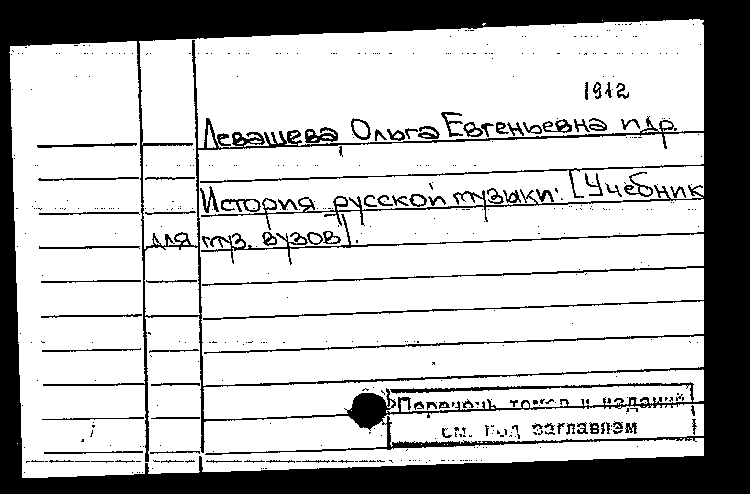 1912
Левашева, Ольга Евгеньевна и др.
История русской музыки: [Учебник
для муз. вузов].
Перечень томов и изданий
см. под заглавием